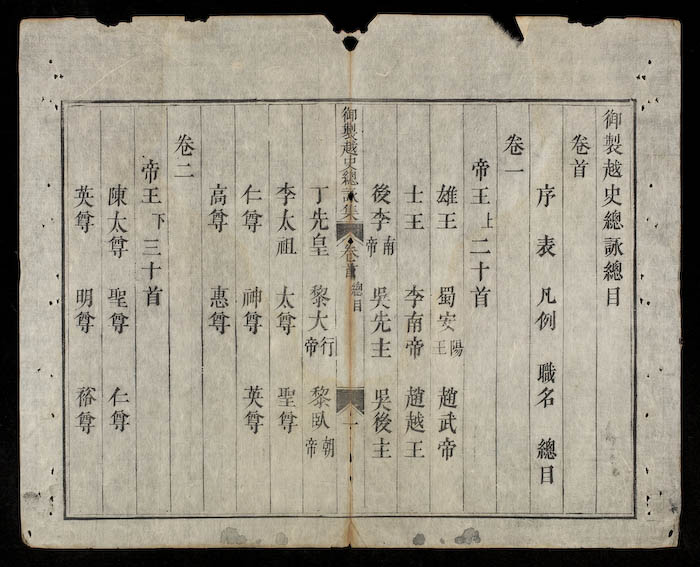 御製越史總詠總目
卷首
序 表 凡例 職名 總目
卷一
帝王上二十首
雄王 蜀安陽王 趙武帝
士王 李南帝 趙越王
後李南帝 吳先主 吳後主
御製越史總詠集 卷首 總目 一
丁先皇 黎大行帝 黎臥朝帝
李太祖 太尊 聖尊
仁尊 神尊 英尊
高尊 惠尊
卷二
帝王下三十首
陳太尊 聖尊 仁尊
英尊 明尊 裕尊